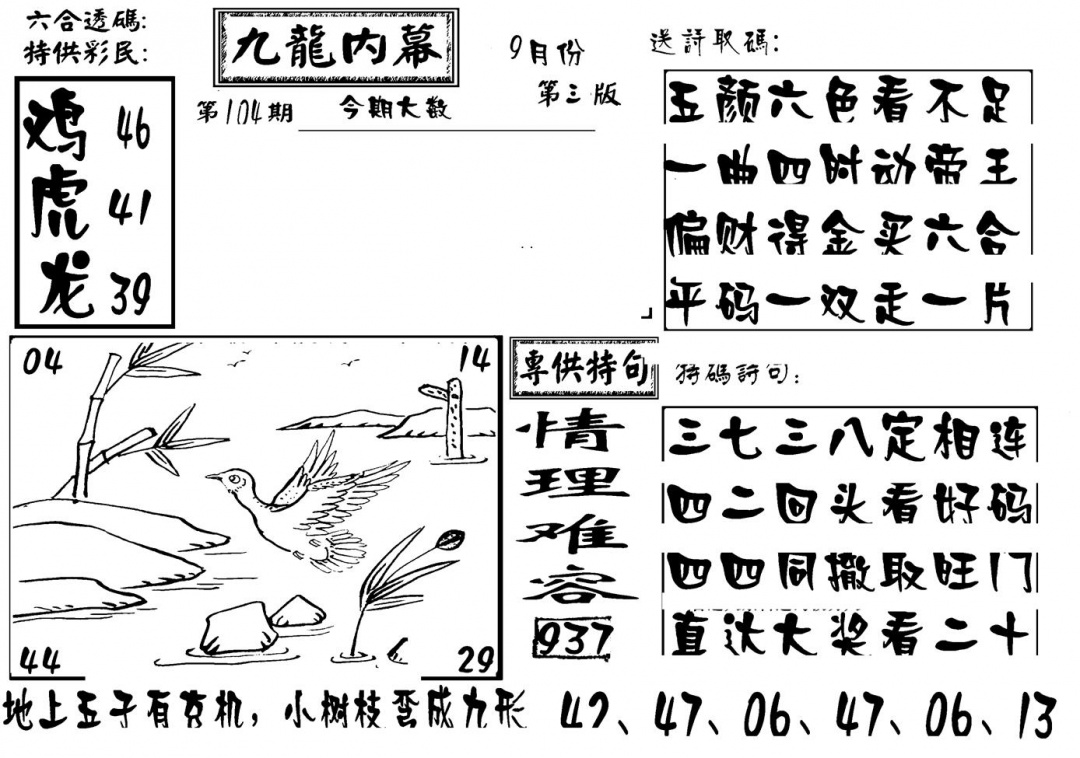 六合透碼:
特供彩民:
鸡 46
虎 41
龙 39
九龍内幕
9月份
第三版
第104期
今期大数
送詩取碼:
五颜六色看不足
一曲四时动帝王
偏财得金买六合
平码一双走一片
04
14
44
29
專供特句
情
理
难
容
937
特碼詩句:
三七三八定相连
四二回头看好码
四四同撤取旺门
直达大奖看二十
地上五子有玄机，小树枝弯成九形
42、47、06、47、06、13